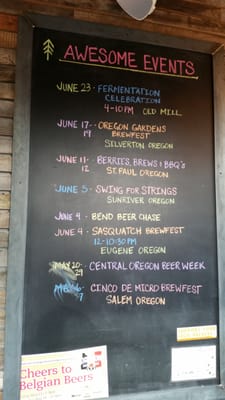 AWESOME EVENTS
JUNE 23 · FERMENTATION
CELEBRATION
4-10 PM OLD MILL
JUNE 17 · OREGON GARDENS
19 BREWFEST
SILVERTON OREGON
JUNE 11 · BERRIES, BREWS & BBQ's
12 ST. PAUL OREGON
JUNE 5 · SWING FOR STRINGS
SUNRIVER OREGON
JUNE 4 · BEND BEER CHASE
JUNE 4 · SASQUATCH BREWFEST
12-10:30PM
EUGENE OREGON
MAY 20 · CENTRAL OREGON BEER WEEK
29
MAY 6 · CINCO DE MICRO BREWFEST
7 SALEM OREGON
Cheers to
Belgian Beers